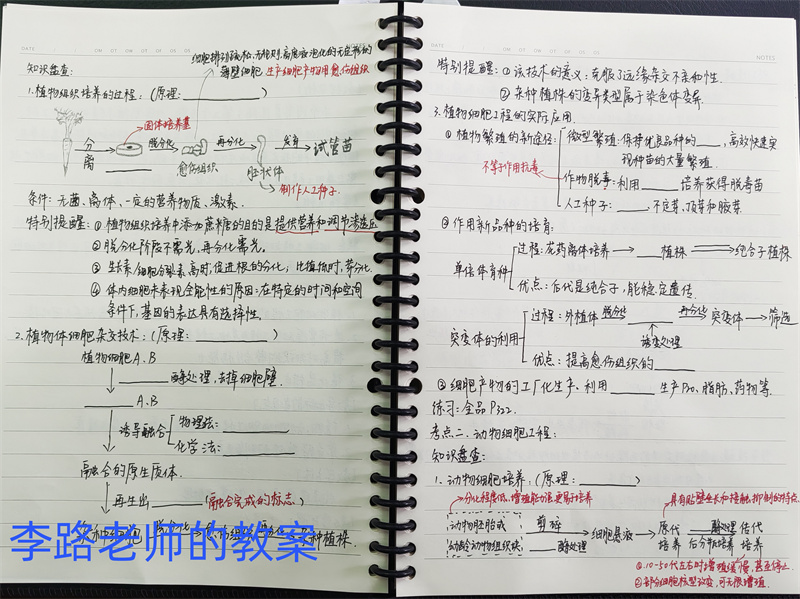 DATE
NOTES
细胞排列疏松、无规则,高度液泡化的无定形的
薄壁细胞. 生产细胞产物用愈伤组织
知识盘查:
1.植物组织培养的过程:(原理:)
固体培养基
分离
脱分化
愈伤组织
再分化
胚状体
发育
试管苗
制作人工种子.
条件:无菌、离体、一定的营养物质、激素.
特别提醒:① 植物组织培养中添加蔗糖的目的是提供营养和调节渗透压
② 脱分化阶段不需光,再分化需光.
③ 生长素/细胞分裂素高时,促进根的分化;比值低时,芽分化.
④ 体内细胞未表现全能性的原因:在特定的时间和空间
条件下,基因的表达具有选择性.
2.植物体细胞杂交技术:(原理:)
植物细胞A、B
酶处理,去掉细胞壁.
A、B
诱导融合
物理法:
化学法:
融合的原生质体.
再生出 (融合完成的标志)
种植株.
李路老师的教案
特别提醒:① 该技术的意义:克服了远缘杂交不亲和性.
② 杂种植株的变异类型属于染色体变异.
3.植物细胞工程的实际应用.
① 植物繁殖的新途径:
微型繁殖:保持优良品种的,高效快速实
现种苗的大量繁殖.
不等于作用抗毒
作物脱毒:利用 培养获得脱毒苗
人工种子: 不定芽、顶芽和腋芽.
② 作用新品种的培育:
单倍体育种
过程:花药离体培养→ 植株 → 纯合子植株
优点:后代是纯合子,能稳定遗传.
突变体的利用
过程:外植体 脱分化 再分化 突变体→筛选
诱变处理
优点:提高愈伤组织的
③ 细胞产物的工厂化生产、利用 生产Pro、脂肪、药物等.
练习:全品P
考点二.动物细胞工程:
知识盘查:
1.动物细胞培养:(原理:)
分化程度低,增殖能力强,更易于培养
具有贴壁生长和接触抑制的特点
动物胚胎或
幼龄动物组织块
剪碎
酶处理
细胞悬液→
原代
培养
酶处理
后分瓶培养
传代
培养
①10-50代左右时增殖缓慢,甚至停止.
②部分细胞核型改变,可无限增殖.